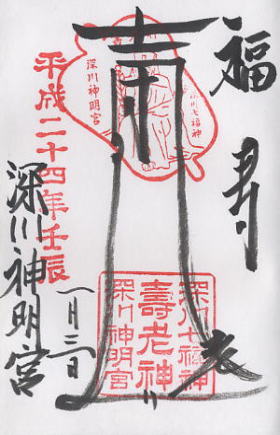 福
寿
深川七福神
深川神明宮
平成二十四年壬辰
一月三日
深川神明宮
深川七福神
壽老神
深川神明宮